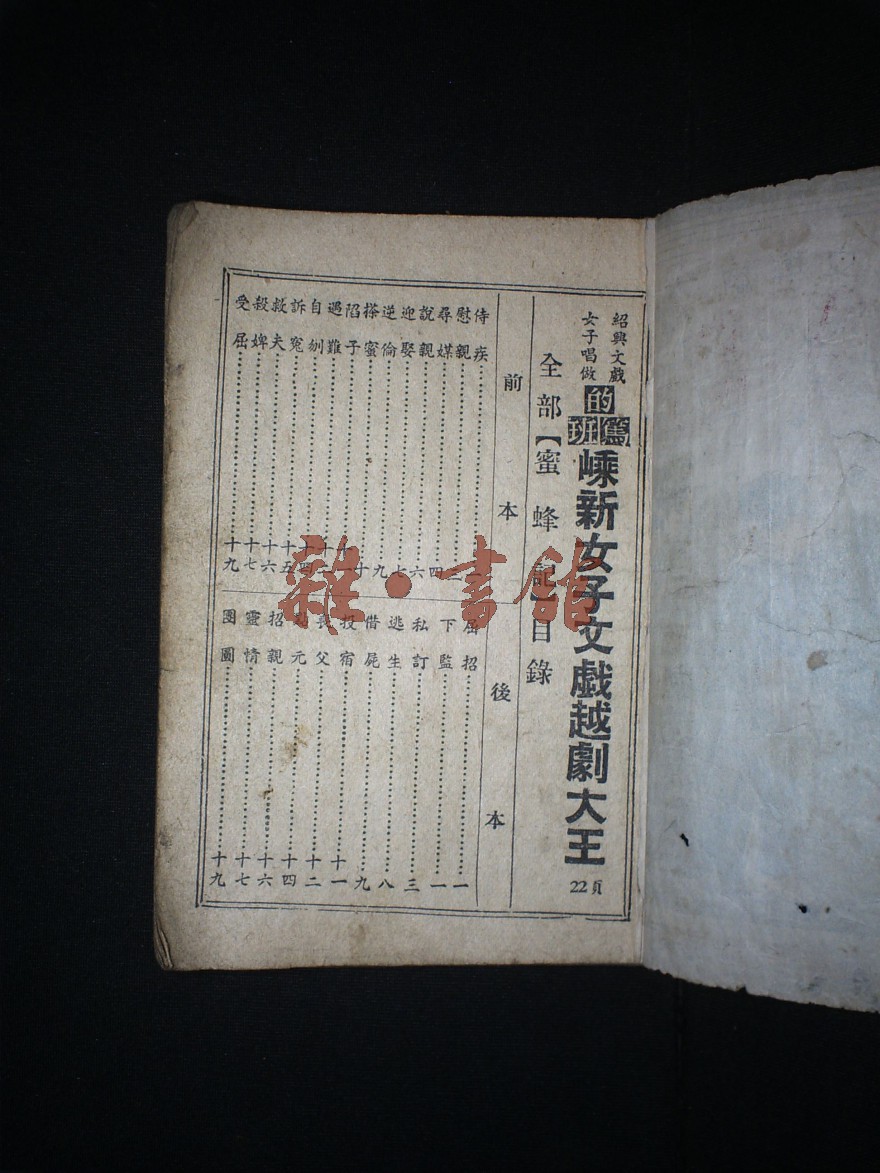 紹興文戲
女子唱做
的篤班
嵊新女子文戲越劇大王
22頁
全部【蜜蜂記】目錄
前本
侍疾
慰親……三
尋媒……四
說親……六
迎娶……七
逆倫……九
搽蜜……十
陷子……十一
遇難……十二
自刎……十四
訴冤……十五
救夫……十六
殺婢……十七
受屈……十九
後本
屈招……一
下監……一
私訂……三
逃生……八
借屍……九
投宿……十一
父……十二
點元……十四
招親……十六
靈情……十七
團圓……十九
雜·書館